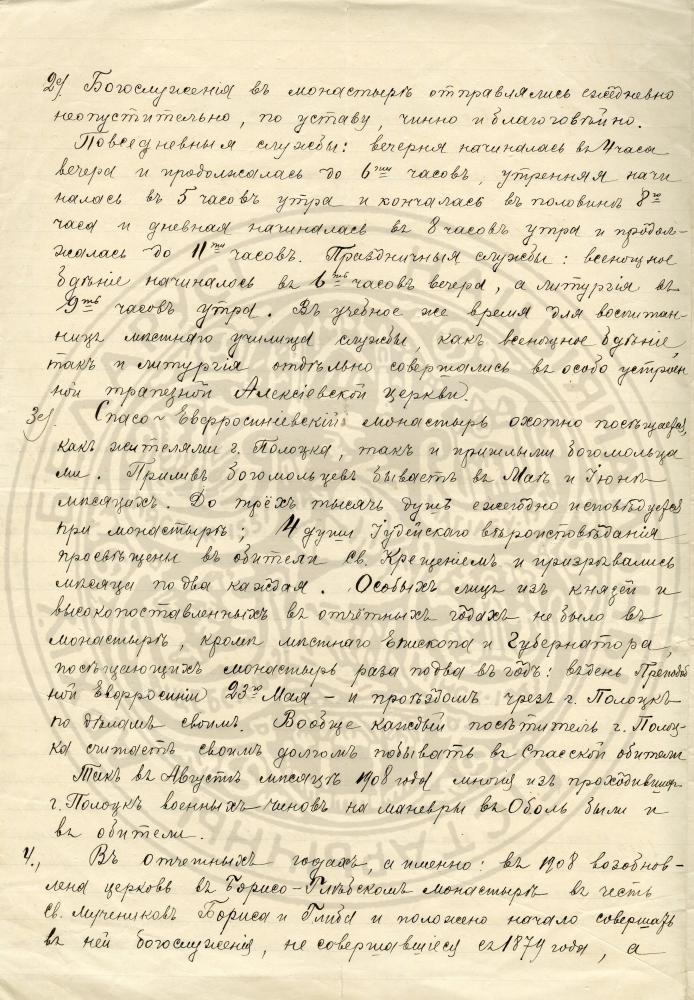 2е) Богослуженія въ монастырѣ отправлялись ежедневно
неопустительно, по уставу, чинно и благоговѣйно.
Повседневныя службы: вечерня начиналась въ 4 часа
вечера и продолжалась до 6ти часовъ, утренняя начи
налась въ 5 часовъ утра и кончалась въ половинѣ 8го
часа и дневная начиналась въ 8 часовъ утра и продол-
жалась до 11ти часовъ. Праздничныя службы: всенощное
бдѣніе начиналось въ 6ть часовъ вечера, а литургія въ
9ть часовъ утра. Въ учебное же время для воспитан-
ницъ мѣстнаго училища службы, какъ всенощное бдѣніе,
такъ и литургія отдѣльно совершались въ особо устроен
ной трапезной Алексіевской церкви.
3е). Спасо-Евфросиніевскій монастырь охотно посѣщается,
какъ жителями г. Полоцка, такъ и пришлыми богомольца
ми. Приливъ богомольцевъ бываетъ въ Маѣ и Іюнѣ
мѣсяцахъ. До трёхъ тысячъ душъ ежегодно исповѣдуется
при монастырѣ; 4 души Іудейскаго вѣроисповѣданія
просвѣщены въ обители св. Крещеніемъ и призрѣвались
мѣсяца по два каждая. Особыхъ лицъ изъ князей и
высокопоставленныхъ въ отчётныхъ годахъ не было въ
монастырѣ, кромѣ мѣстнаго Епископа и Губернатора,
посѣщающихъ монастырь раза по два въ годъ: въ день Преподоб
ной Евфросиніи 23го Мая – и проѣздомъ чрезъ г. Полоцкъ
по дѣламъ своимъ. Вообще каждый посѣтитель г. Полоц-
ка считаетъ своимъ долгомъ побывать въ Спасской обители
Такъ въ Августѣ мѣсяцѣ 1908 года многія изъ проходившихъ
г. Полоцкъ военныхъ чиновъ на маневры въ Оболь были и
въ обители.
4., Въ отчетныхъ годахъ, а именно: въ 1908 возобнов-
лена церковь въ Борисо-Глѣбскомъ монастырѣ въ честь
св. мучениковъ Бориса и Глѣба и положено начало совершать
въ ней богослуженія, не совершавшіеся съ 1879 года, а